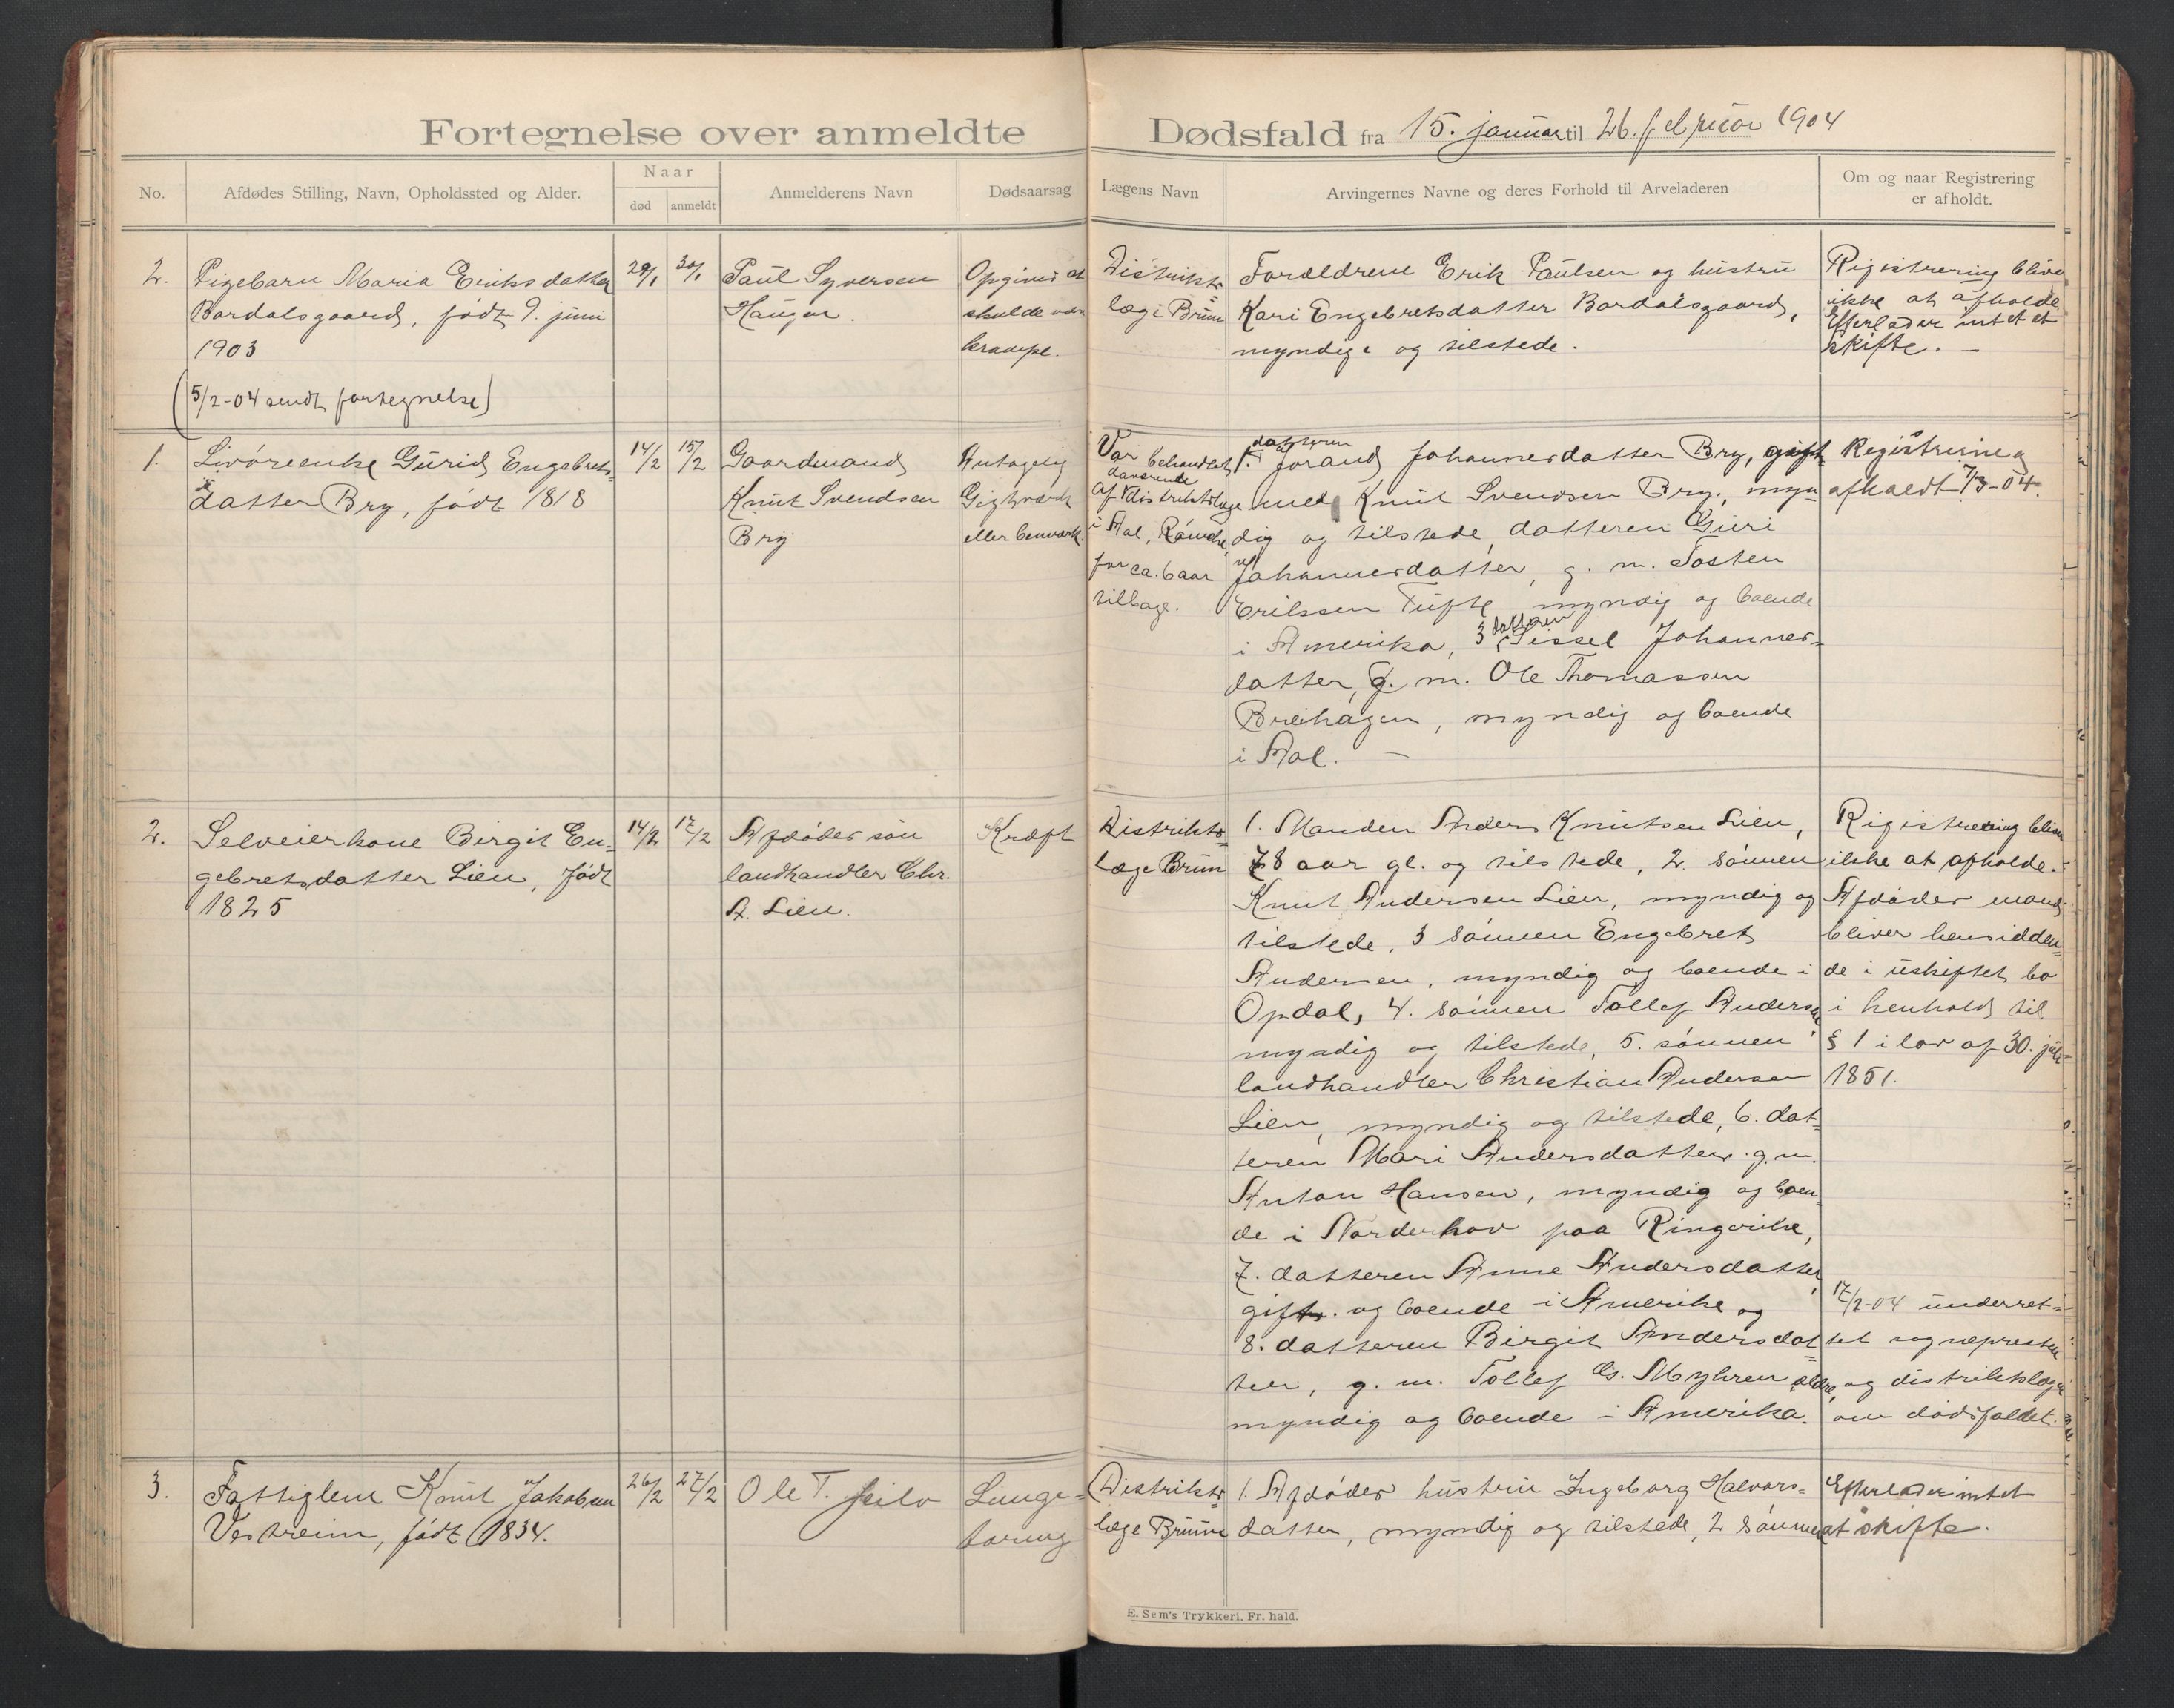 Fortegnelse over anmeldte Dødsfald fra 15. januar til 26. februar 1904
No.
Afdødes Stilling, Navn, Opholdssted og Alder.
Naar
død
anmeldt
Anmelderens Navn
Dødsaarsag
Lægens Navn
Arvingernes Navne og deres Forhold til Arveladeren
Om og naar Registrering
er afholdt.
2.
Pigebarn Maria Eriksdatter
Bardalsgaard, født 9. juni
1903
(5/2-04 sendt fortegnelse)
29/1
30/1
Paul Syversen
Haugar.
Opgives at
skulde være
krampe.
Distrikts
læge Bruun
Forældrene Erik Paulsen og hustru
Kari Engebretsdatter Bardalsgaard,
myndige og tilstede.
Registrering bliver
ikke at afholde
Efterlader intet at
skifte. —
1.
Livøreenke Gurid Engebrets-
datter Bry, født 1818
14/2
15/2
Gaardmand
Knut Svendsen
Bry
Antagelig
Gigtværk
eller benværk.
Var behandlet
af daværende distriktslæge
i Aal, Rømcke,
for ca. 6 aar
tilbage.
1. datteren Jorand Johannesdatter Bry, gift
med Knut Svendsen Bry, myn-
dig og tilstede, datteren Guri
Johannesdatter, g. m. Tosten
Erikssen Tufte, myndig og boende
i Amerika, 3 datteren Sissel Johannes-
datter, g. m. Ole Thomassen
Breihagen, myndig og boende
i Aal. —
Registrering
afholdt 7/3-04.
2.
Selveierkone Birgit En-
gebretsdatter Lien, født
1825
14/2
17/2
Afdødes søn
landhandler Chr.
A. Lien.
Kræft
Distrikts-
læge Bruun
1. Manden Anders Knutsen Lien,
78 aar gl. og tilstede, 2. sønnen
Knut Andersen Lien, myndig og
tilstede, 3 sønnen Engebret
Andersen, myndig og boende i
Opdal, 4. sønnen Tollef Andersen
myndig og tilstede, 5. sønnen
landhandler Christian Andersen
Lien, myndig og tilstede, 6. dat-
teren Mari Andersdatter g. m.
Anton Hansen, myndig og boen-
de i Norderhov paa Ringerike,
7. datteren Anne Andersdatter,
gift. og boende i Amerika og
8. datteren Birgit Andersdat-
ter, g. m. Tollef Ols. Myhren ældre,
myndig og boende i Amerika.
Registrering bliver
ikke at afholde.
Afdødes mand
bliver hensidden-
de i uskiftet bo
i henhold til
§ 1 i lov af 30. juli
1851.
17/2-04 underret-
tet sognepresten
og distriktslægen
om dødsfaldet.
3.
Fattiglem Knut Jakobsen
Vestreim, født 1834.
26/2
27/2
Ole T.
Lunge-
Distrikts
læge Bruun
1. Afdødes hustru Ingeborg Halvors-
datter, myndig og tilstede, 2 sønnen
Efterlader intet
at skifte.
E. Sem's Trykkeri, Fr. hald.